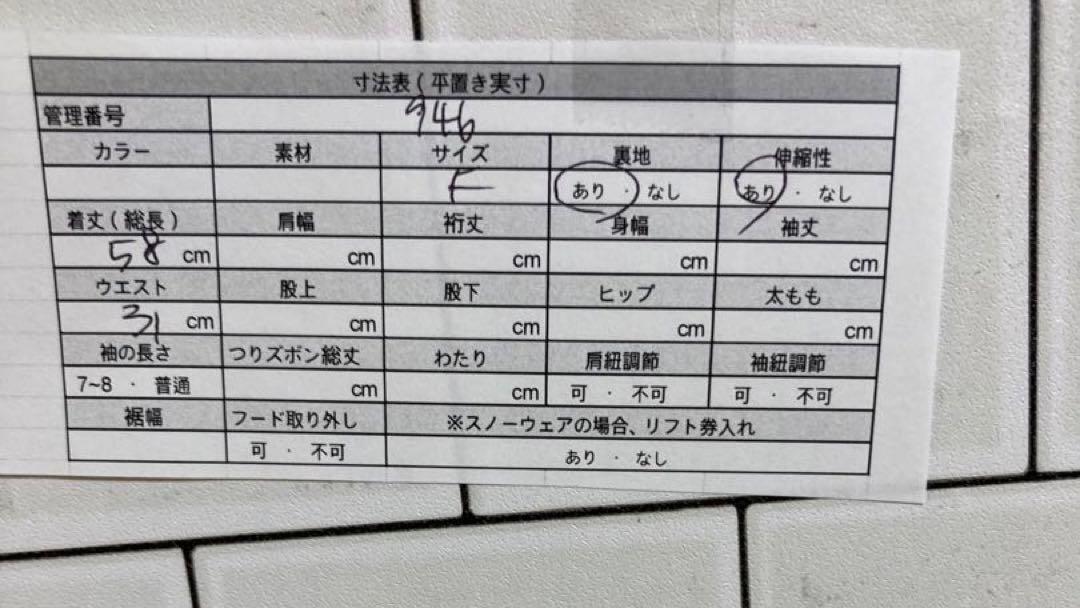 寸法表(平置き実寸)
管理番号 946
カラー 素材 サイズ 裏地 伸縮性
F あり · なし あり · なし
着丈(総長) 肩幅 裄丈 身幅 袖丈
58 cm cm cm cm cm
ウエスト 股上 股下 ヒップ 太もも
31 cm cm cm cm cm
袖の長さ つりズボン総丈 わたり 肩紐調節 袖紐調節
7~8 · 普通 cm cm 可 · 不可 可 · 不可
裾幅 フード取り外し ※スノーウェアの場合、リフト券入れ
可 · 不可 あり · なし